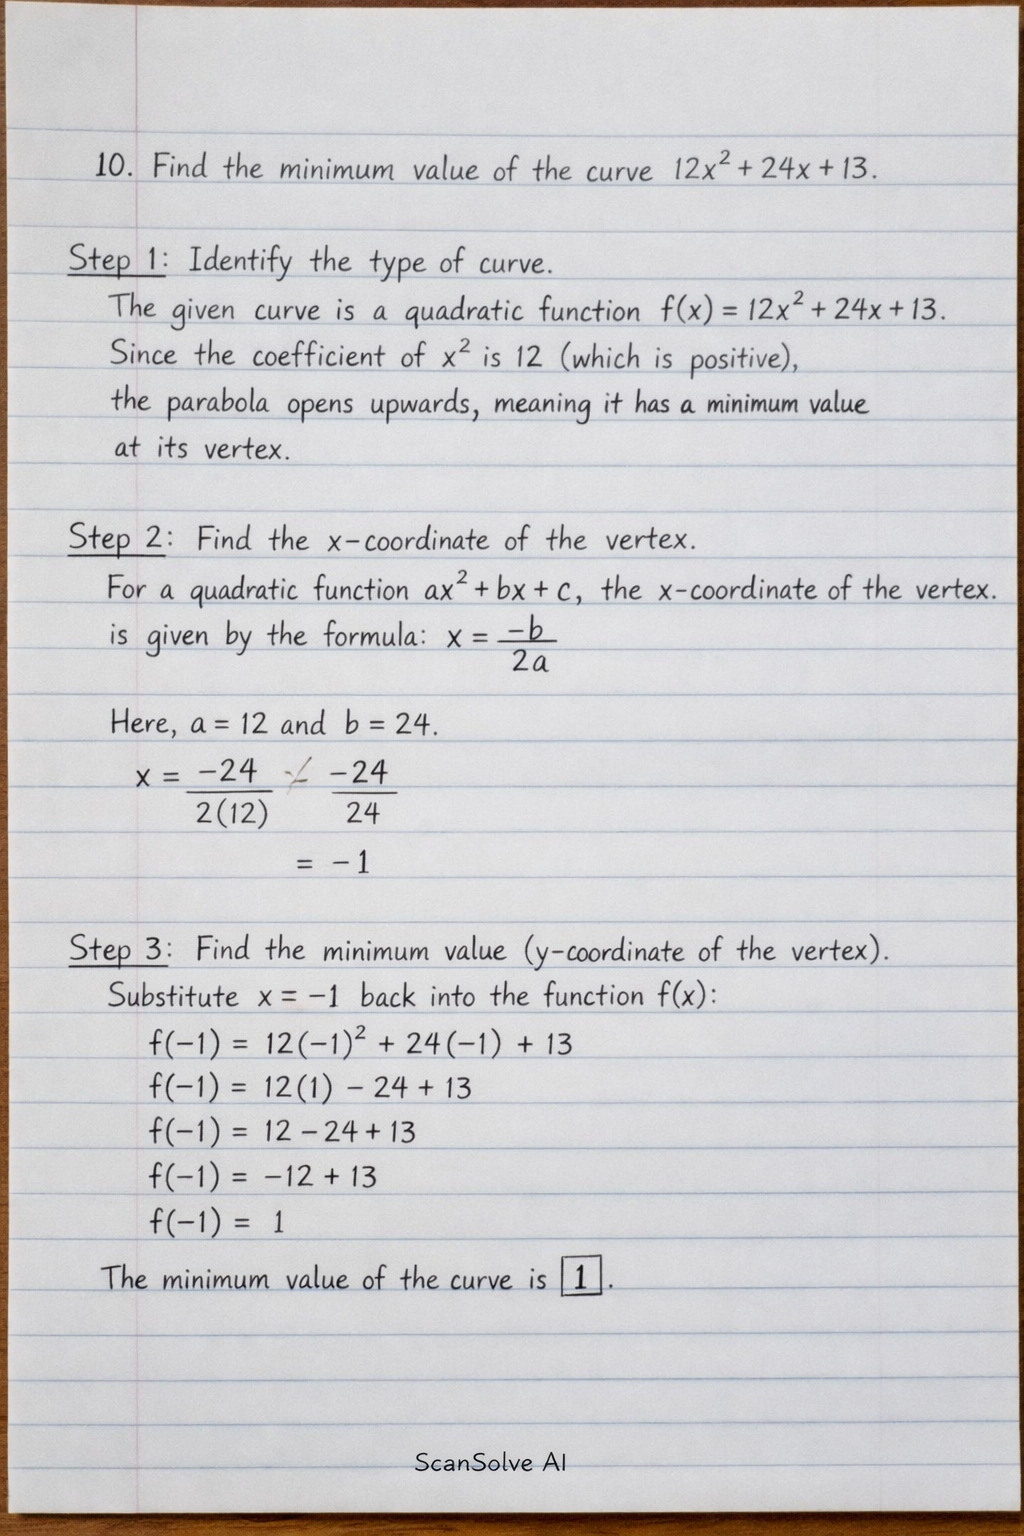 10. Find the minimum value of the curve 12x² + 24x + 13.
Step 1: Identify the type of curve.
The given curve is a quadratic function f(x) = 12x² + 24x + 13.
Since the coefficient of x² is 12 (which is positive),
the parabola opens upwards, meaning it has a minimum value
at its vertex.
Step 2: Find the x-coordinate of the vertex.
For a quadratic function ax² + bx + c, the x-coordinate of the vertex.
is given by the formula: x = -b/2a
Here, a = 12 and b = 24.
x = -24/2(12) -24/24
= -1
Step 3: Find the minimum value (y-coordinate of the vertex).
Substitute x = -1 back into the function f(x):
f(-1) = 12(-1)² + 24(-1) + 13
f(-1) = 12(1) - 24 + 13
f(-1) = 12 - 24 + 13
f(-1) = -12 + 13
f(-1) = 1
The minimum value of the curve is 1.
ScanSolve AI